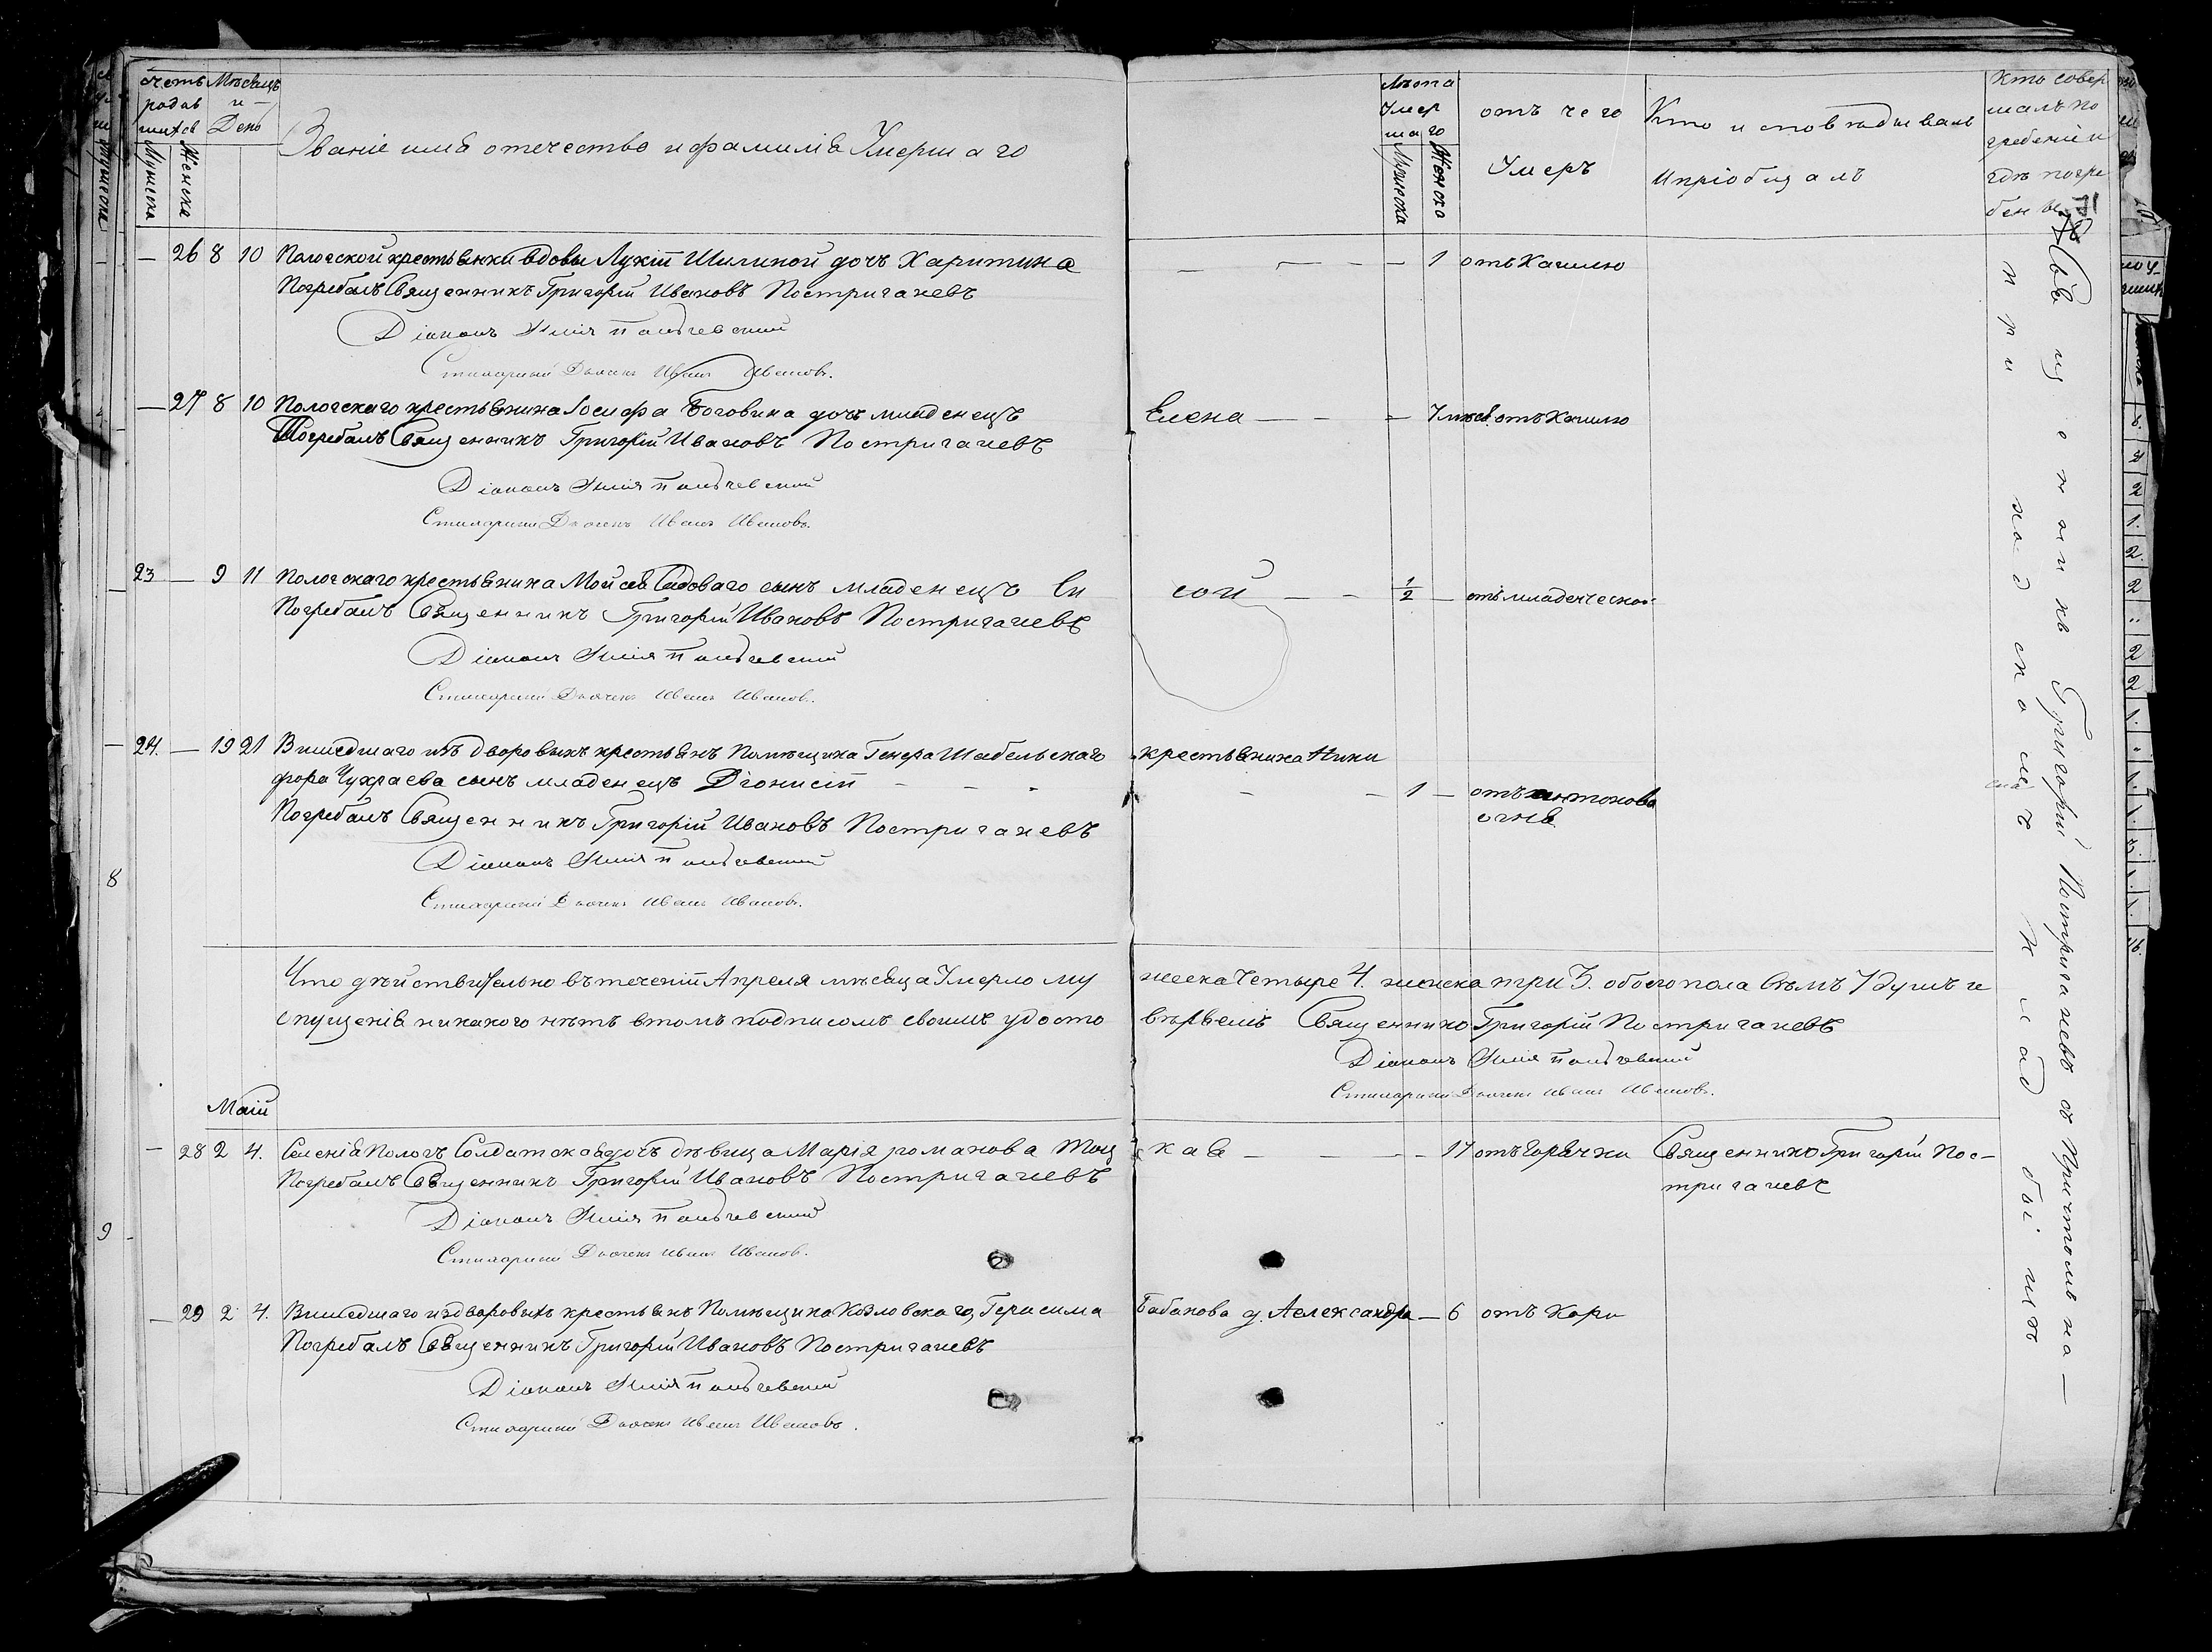 Счетъ родившихся
Мѣсяцъ и День
Званіе имя отечество и фамилія Умершаго
Лѣта Умершаго
отъ чего Умеръ
Кто исповѣдывалъ и пріобщалъ
Кто совершалъ погребеніе и гдѣ погребены
Мужеска Женска
Мужеска Женска
— 26 8 10 Пологской крестьянки вдовы Лукіи Шилиной дочь Харитина — — — 1 отъ Кашлю
Погребалъ Священникъ Григорій Ивановъ Постригачевъ
Діаконъ
Стихарный Дьячекъ Иванъ Ивановъ.
— 27 8 10 Пологскаго крестьянина Іосифа Боговина дочь младенецъ Елена — — — 7 мѣсяц. отъ Кашлю
Погребалъ Священникъ Григорій Ивановъ Постригачевъ
Діаконъ
Стихарный Дьячекъ Иванъ Ивановъ.
23 — 9 11 Пологскаго крестьянина Мойсея Садоваго сынъ младенецъ Ки сой — — 1/2 — отъ младенческой
Погребалъ Священникъ Григорій Ивановъ Постригачевъ
Діаконъ
Стихарный Дьячекъ Иванъ Ивановъ.
24. — 19 21 Вишедшаго изъ дворовыхъ крестьянъ Помѣщика Генера Шабельскаго крестьянина Ники
фора Чухраева сынъ младенецъ Діонисій — — — — — 1 — отъ антонова огня
Погребалъ Священникъ Григорій Ивановъ Постригачевъ
Діаконъ
Стихарный Дьячекъ Иванъ Ивановъ.
8
Что дѣйствительно въ теченіи Апреля мѣсяца Умерло му жеска Четыре 4. женска три 3. обоего пола всѣмъ 7 душъ и
спущенія никакого нѣтъ втомъ подписомъ своимъ удосто вѣряемъ Священникъ Григорій Постригачевъ
Діаконъ
Стихарный Дьячекъ Иванъ Ивановъ.
Маій
— 28 2 4. Селенія Пологъ Солдатская дочь дѣвица Марія романова Тоц кая — — — 17 отъ Горячки Священникъ Григорій Пос-
тригачевъ
Погребалъ Священникъ Григорій Ивановъ Постригачевъ
Діаконъ
Стихарный Дьячекъ Иванъ Ивановъ.
9
— 29 2 4. Вишедшаго издворовыхъ крестьянъ Помѣщика Козловскаго, Герасима Бабакова д. Александра — 6 отъ Кори
Погребалъ Священникъ Григорій Ивановъ Постригачевъ
Діаконъ
Стихарный Дьячекъ Иванъ Ивановъ.
Священникъ Григорій Постригачевъ съ Причтомъ на —
приходскомъ Кладбищѣ